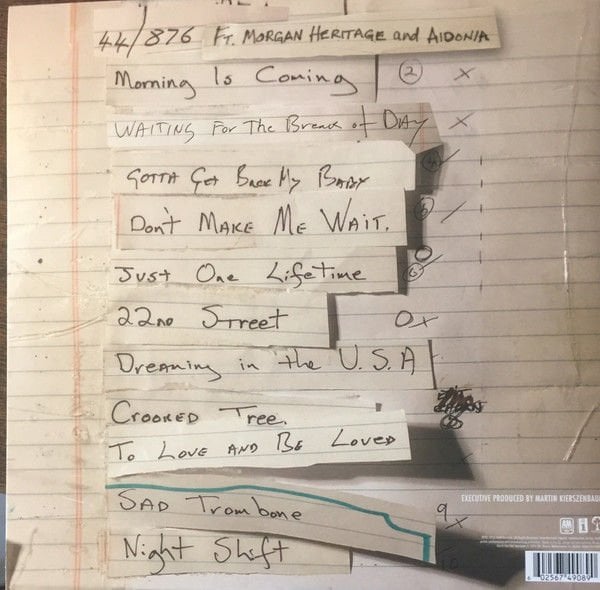 44/876 FT. MORGAN HERITAGE and AIDONIA
Morning Is Coming 2 x
WAITING For The Break of DAY x
GOTTA Get Back My BABY
Don't MAKE ME WAIT.
Just One Lifetime 6
22ND Street 0x
Dreaming in the U.S.A
CROOKED Tree. 8
To LOVE AND BE LOVED
EXECUTIVE PRODUCED BY MARTIN KIERSZENBAU
SAD Trombone 9 x
Night Shift 10
6 02567 49089